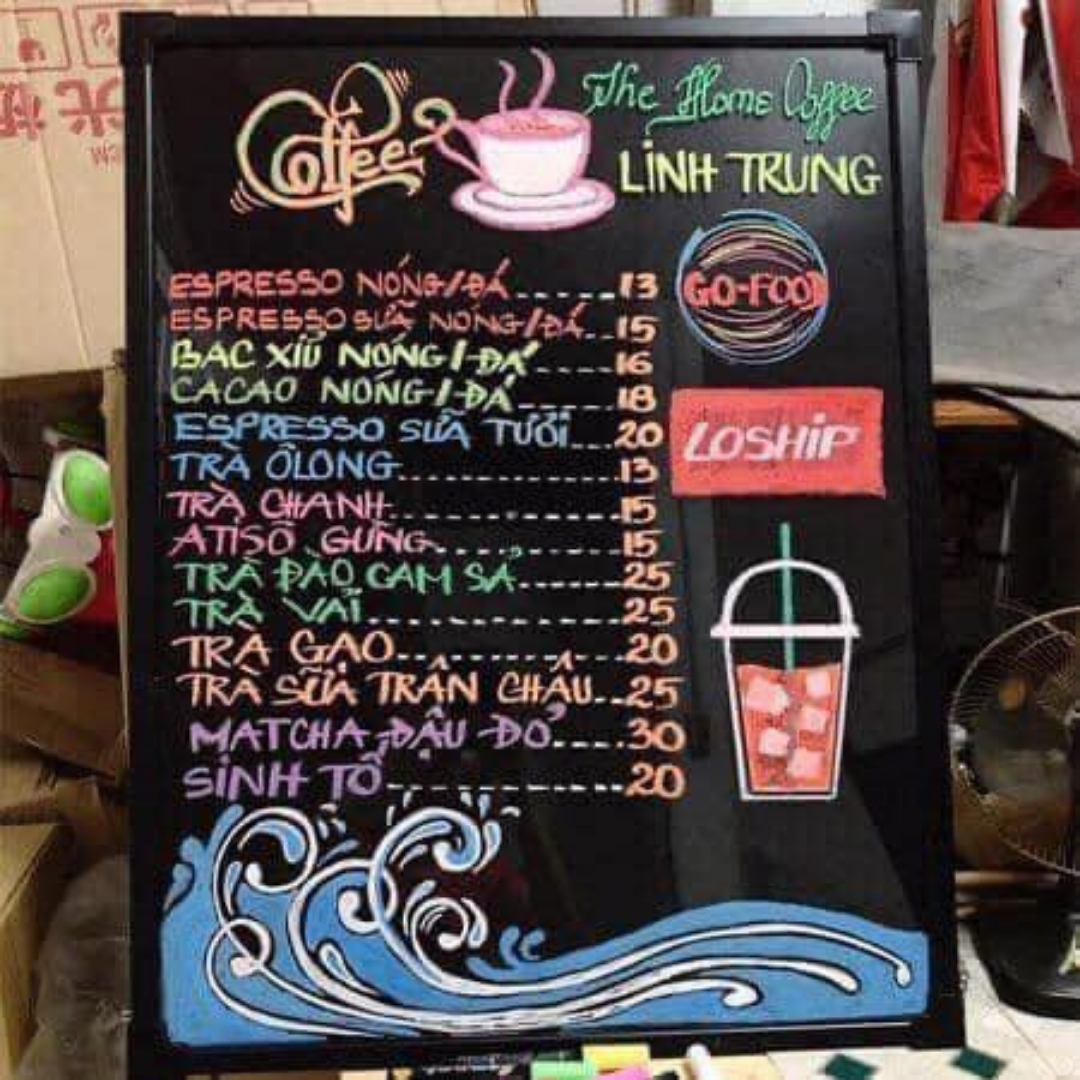 Coffee
The Home Coffee
LINH TRUNG
ESPRESSO NÓNG/ĐÁ 13
ESPRESSO SỮA NÓNG/ĐÁ 15
BẠC XỈU NÓNG/ĐÁ 16
CACAO NÓNG/ĐÁ 18
ESPRESSO SỮA TƯƠI 20
TRÀ ÔLONG 13
TRÀ CHANH 15
ATISÔ GỪNG 15
TRÀ ĐÀO CAM SẢ 25
TRÀ VẢI 25
TRÀ GẠO 20
TRÀ SỮA TRÂN CHÂU 25
MATCHA ĐẬU ĐỎ 30
SINH TỐ 20
GO-FOOD
LOSHIP